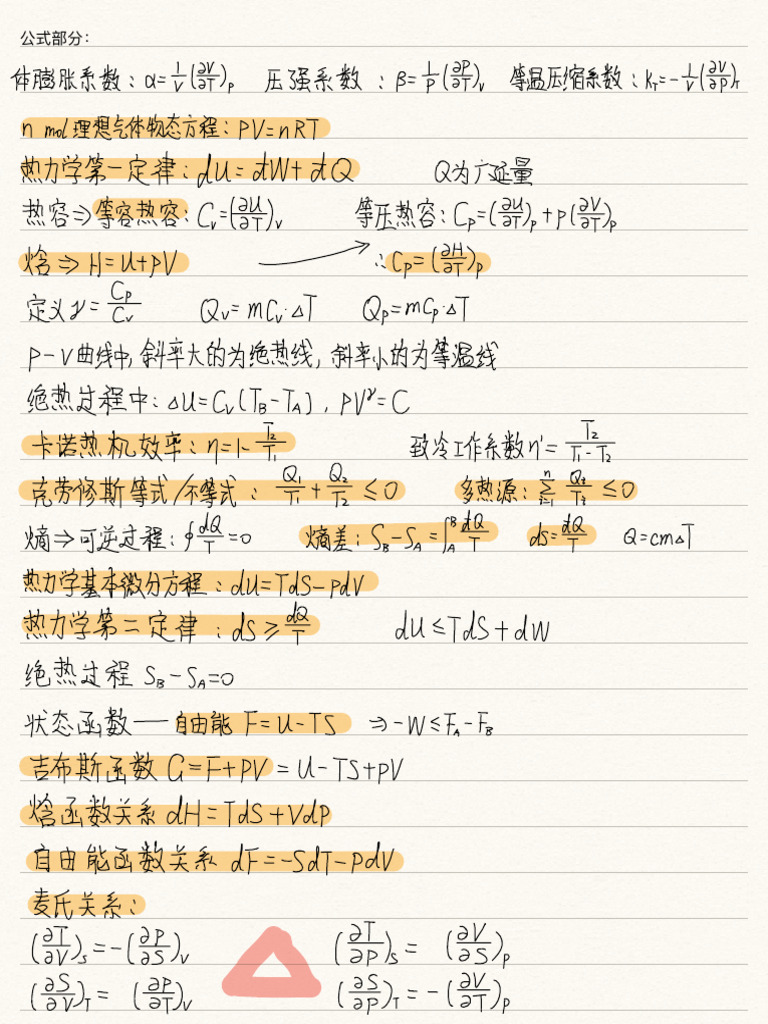 公式部分：
体膨胀系数：α=1/V(∂V/∂T)_p 压强系数：β=1/p(∂P/∂T)_V 等温压缩系数：k_T=-1/V(∂V/∂p)_T
n mol理想气体物态方程：PV=nRT
热力学第一定律：dU=đW+đQ Q为广延量
热容⇒等容热容：C_V=(∂U/∂T)_V 等压热容：C_p=(∂U/∂T)_p+p(∂V/∂T)_p
焓⇒H=U+PV ∴C_p=(∂H/∂T)_p
定义γ=C_p/C_V Q_V=mC_V·ΔT Q_p=mC_p·ΔT
P-V曲线中，斜率大的为绝热线，斜率小的为等温线
绝热过程中：ΔU=C_V(T_B-T_A)，PV^γ=C
卡诺热机效率：η=1-T₂/T₁ 致冷工作系数η'=T₂/(T₁-T₂)
克劳修斯等式/不等式：Q₁/T₁+Q₂/T₂≤0 多热源：∑_{i=1}^{n} Q_i/T_i≤0
熵⇒可逆过程：∮đQ/T=0 熵差：S_B-S_A=∫_A^B đQ/T dS=đQ/T Q=cmΔT
热力学基本微分方程：dU=TdS-pdV
热力学第二定律：dS≥đQ/T dU≤TdS+đW
绝热过程 S_B-S_A=0
状态函数——自由能 F=U-TS ⇒-W≤F_A-F_B
吉布斯函数 G=F+PV=U-TS+pV
焓函数关系 dH=TdS+Vdp
自由能函数关系 dF=-SdT-PdV
麦氏关系：
(∂T/∂V)_S=-(∂P/∂S)_V (∂T/∂P)_S=(∂V/∂S)_p
(∂S/∂V)_T=(∂P/∂T)_V (∂S/∂P)_T=-(∂V/∂T)_p